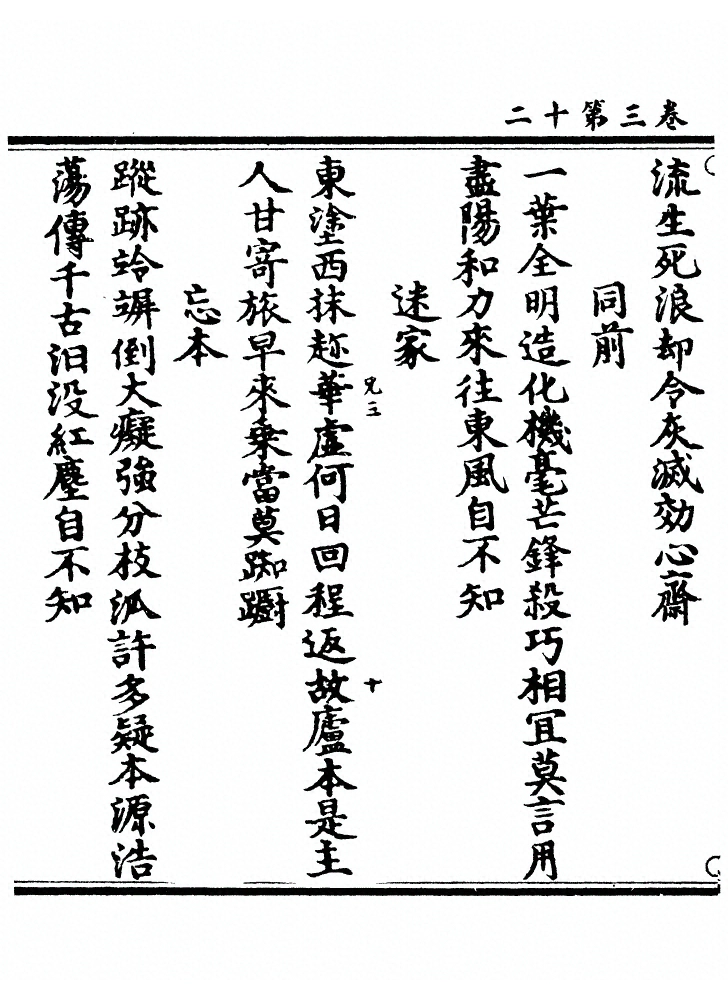 卷三第十二
流生死浪却令灰滅効心齋
同前
一葉全明造化機毫芒鋒殺巧相冝莫言用
盡陽和力來往東風自不知
迷家
東塗西抹趂華虛何日回程返故廬本是主
兄三
十
人甘寄旅早來乗當莫踟躕
忘本
蹤跡竛竮倒大癡強分枝泒許多疑本源浩
蕩傳千古汩没紅塵自不知